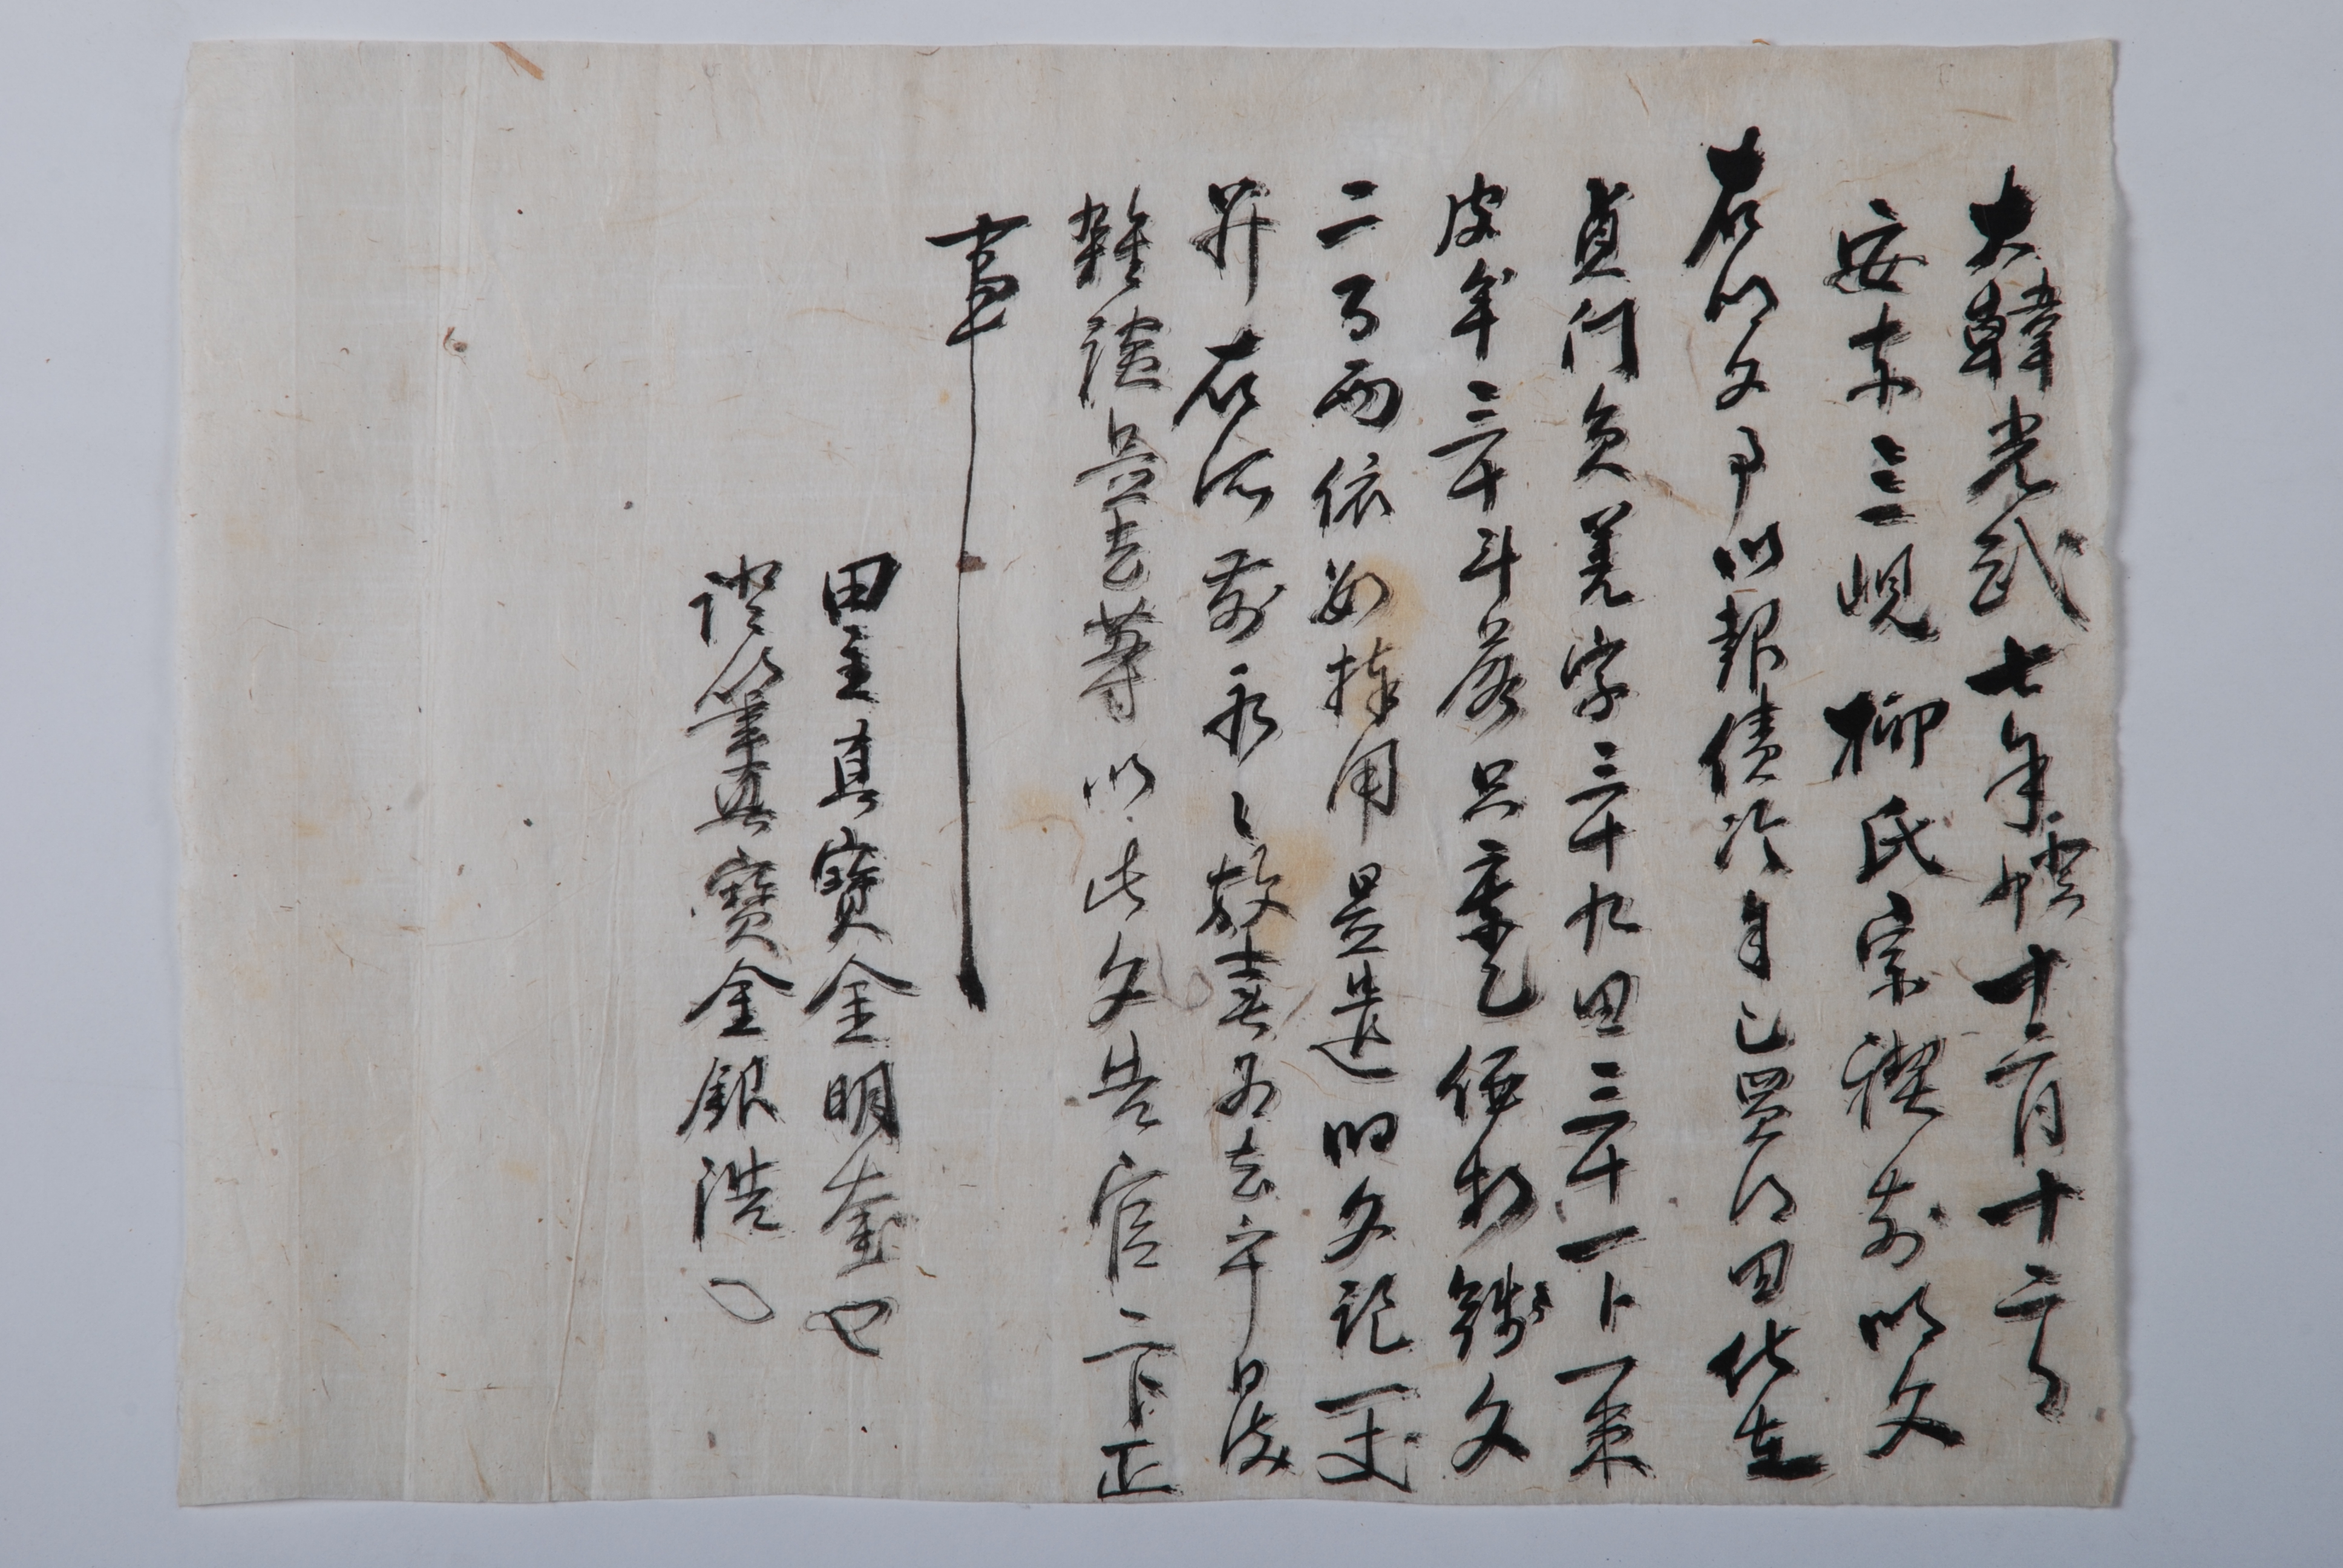 大韓光武七年癸卯十二月十二日
安東三峴柳氏宗稧前明文
右明文事以報債次自己買得田伏在
貞門員羌字三十九田三十一卜一束
皮牟三十斗落只庫乙價折錢文
二百両依數捧用是遣旧文記一丈
幷右宗前永〻放賣爲去乎日後
雜談是去等以此文告官卞正
事
田主真寶金明奎
證筆真寶金銀浩